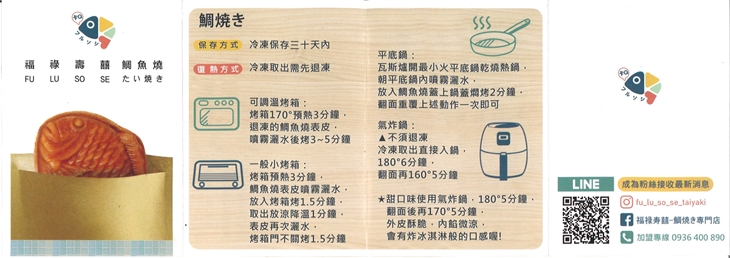 福 祿 壽 囍 鯛 魚 燒
FU LU SO SE たい焼き
鯛焼き
保存方式 冷凍保存三十天內
復熱方式 冷凍取出需先退凍
可調溫烤箱：
烤箱170°預熱3分鐘，
退凍的鯛魚燒表皮，
噴霧灑水後烤3~5分鐘
一般小烤箱：
烤箱預熱3分鐘，
鯛魚燒表皮噴霧灑水，
放入烤箱烤1.5分鐘，
取出放涼降溫1分鐘，
表皮再次灑水，
烤箱門不關烤1.5分鐘
平底鍋：
瓦斯爐開最小火平底鍋乾燒熱鍋，
朝平底鍋內噴霧灑水，
放入鯛魚燒蓋上鍋蓋燜烤2分鐘，
翻面重覆上述動作一次即可
氣炸鍋：
▲不須退凍
冷凍取出直接入鍋，
180°6分鐘，
翻面再160°5分鐘
★甜口味使用氣炸鍋，180°5分鐘，
翻面後再170°5分鐘，
外皮酥脆，內餡微涼，
會有炸冰淇淋般的口感喔！
LINE 成為粉絲接收最新消息
fu_lu_so_se_taiyaki
福祿寿囍-鯛燒き專門店
加盟專線 0936 400 890